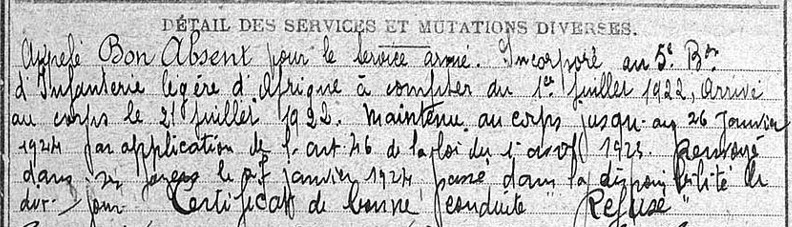 DÉTAIL DES SERVICES ET MUTATIONS DIVERSES.
Appelé Bon Absent pour le service armé. Incorporé au 5e Bon
d'Infanterie légère d'Afrique à compter du 1er juillet 1922, arrivé
au corps le 21 juillet 1922. Maintenu au corps jusqu'au 26 Janvier
1924 par application de l'art. 46 de la loi du 1er avril 1923. Renvoyé
dans ses foyers le janvier 1924, passé dans la disponibilité le
dit jour Certificat de bonne conduite "Refusé"